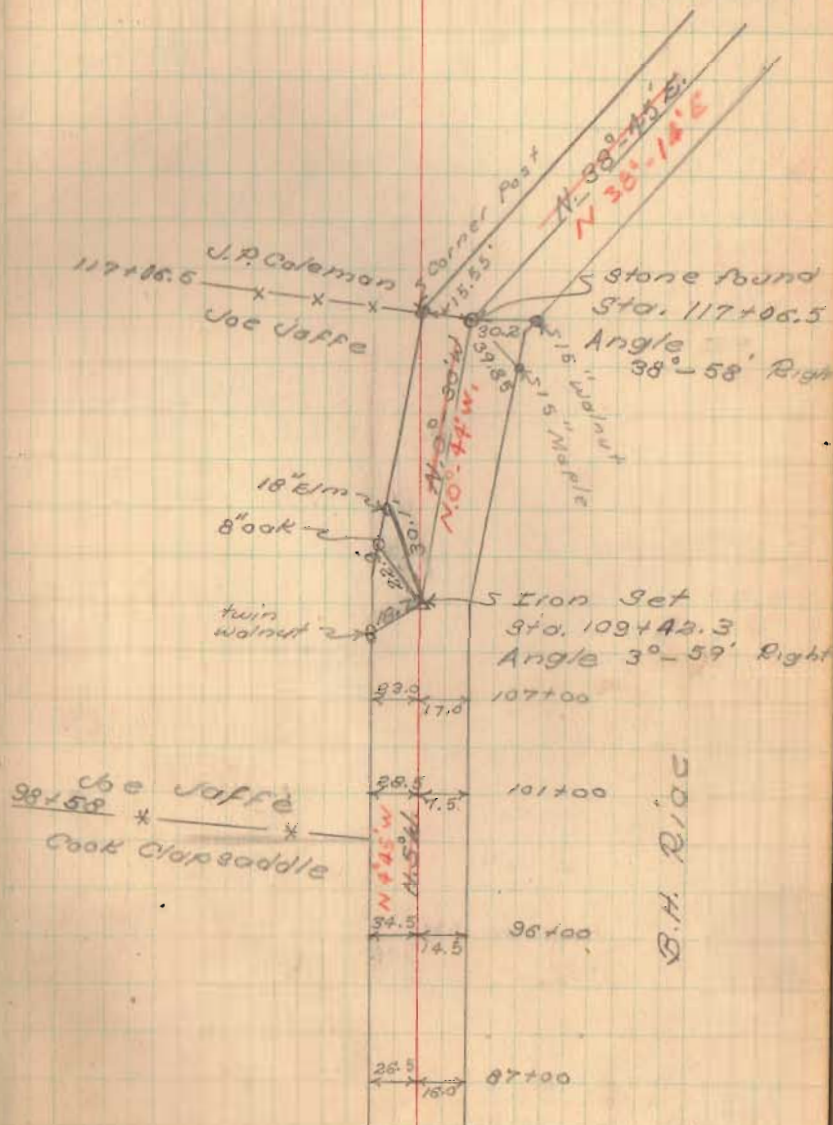 N-38°-45'E.
N 38°-14'E
Corner Post
J.P. Coleman
117+06.5
Joe Jaffe
15.55'
Stone found
Sta. 117+06.5
Angle
38°-58' Righ
30.2
39.85
15" Walnut
15" Maple
N.0°-30'W
N.0°-44'W.
18" Elm
30.1
8" oak
22.2
twin
walnut
18.7
Iron Set
Sta. 109+42.3
Angle 3°-59' Right
23.0
17.0
107+00
Joe Jaffe
98+58
Cook Clapsaddle
28.5
7.5
101+00
N 4°45'W
N.5°W.
B.H.
34.5
14.5
96+00
26.5
16.0
87+00